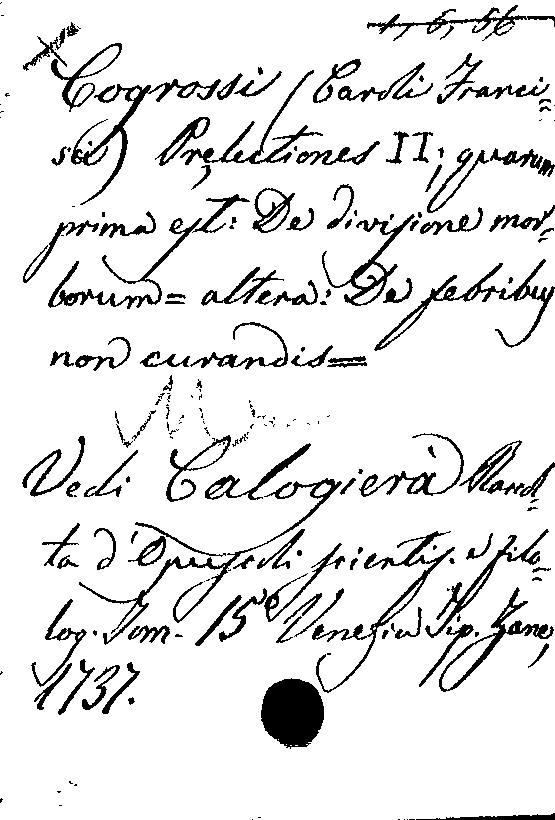 1, 6, 56
Cogrossi (Caroli Franci=
sci) Pręlectiones II; quarum
prima est: De divisione mor=
borum= altera: De febribus
non curandis=
Vedi Calogierà Raccol=
ta d'Opuscoli scientif. e filo=
log. Tom. 15º Venezia Tip. Zane,
1737.